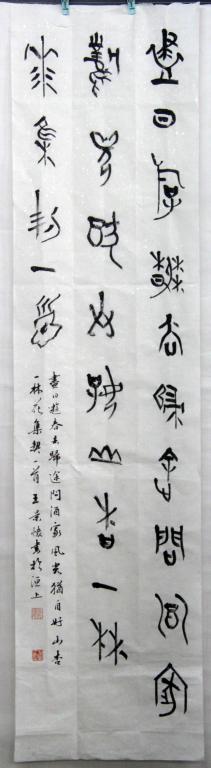 晝日游春去歸途問酒家
風光猶自好山杏一林
花集契一首
晝日遊春去歸途問酒家風光猶自好山杏
一林花集契一首王書於洹上